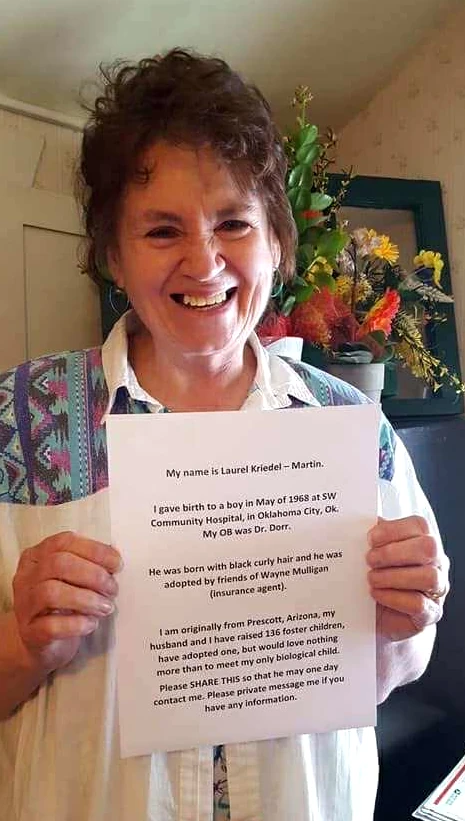 My name is Laurel Kriedel – Martin.
I gave birth to a boy in May of 1968 at SW
Community Hospital, in Oklahoma City, Ok.
My OB was Dr. Dorr.
He was born with black curly hair and he was
adopted by friends of Wayne Mulligan
(insurance agent).
I am originally from Prescott, Arizona, my
husband and I have raised 136 foster children,
have adopted one, but would love nothing
more than to meet my only biological child.
Please SHARE THIS so that he may one day
contact me. Please private message me if you
have any information.